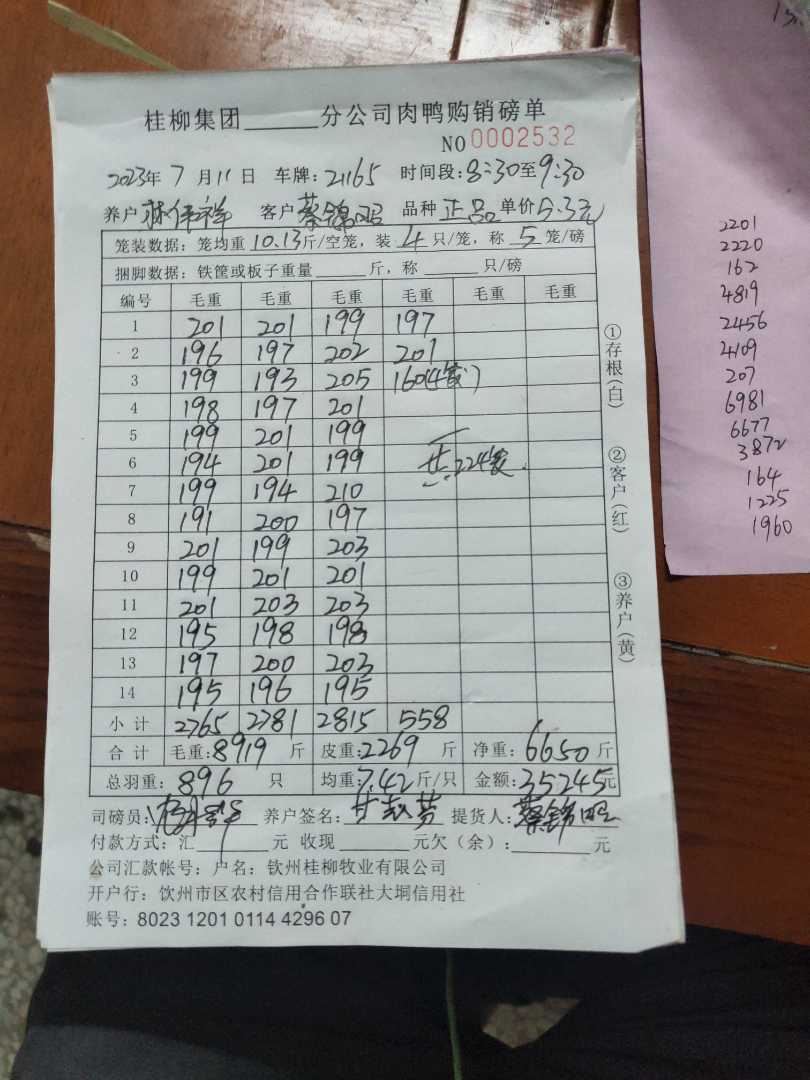 桂柳集团______分公司肉鸭购销磅单
NO 0002532
2023年 7 月 11 日 车牌: 21165 时间段: 8:30至9:30
养户 林伟祥 客户 蔡锦昭 品种 正品 单价 5.3元
笼装数据: 笼均重 10.13斤/空笼, 装 4 只/笼, 称 5 笼/磅
捆脚数据: 铁筐或板子重量______斤, 称______只/磅
编号 毛重 毛重 毛重 毛重 毛重 毛重
1 201 201 199 197
2 196 197 202 201
3 199 193 205 160(4笼)
4 198 197 201
5 199 201 199
6 194 201 199 共:224笼.
7 199 194 210
8 191 200 197
9 201 199 203
10 199 201 201
11 201 203 203
12 195 198 198
13 197 200 203
14 195 196 195
小计 2765 2781 2815 558
合计 毛重: 8919 斤 皮重: 2269 斤 净重: 6650 斤
总羽重: 896 只 均重: 7.42 斤/只 金额: 35245元
司磅员: 养户签名: 提货人: 蔡锦昭
付款方式: 汇______元 收现______元欠(余):______元
公司汇款帐号: 户名: 钦州桂柳牧业有限公司
开户行: 饮州市区农村信用合作联社大垌信用社
账号: 8023 1201 0114 4296 07
①存根(白)
②客户(红)
③养户(黄)
2201
2220
162
4819
2456
4109
207
6981
6677
3872
164
1225
1960